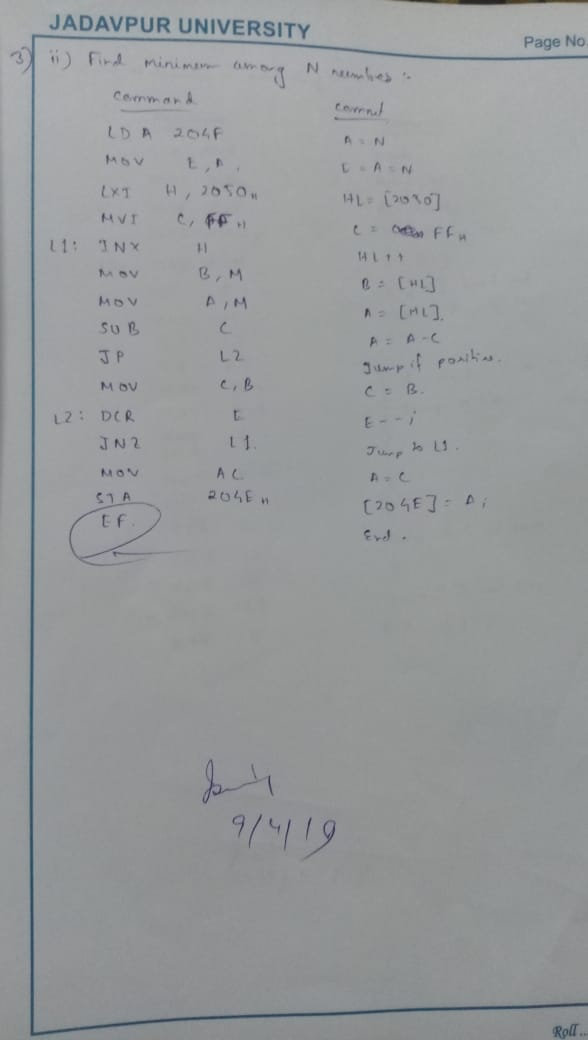 JADAVPUR UNIVERSITY
Page No.
3) ii) Find minimum among N numbers :-
Command Comment
LDA 204F A = N
MOV E, A, E = A = N
LXI H, 2050H HL = [2050]
MVI C, FFH C = FFH
L1: INX H HL++
MOV B, M B = [HL]
MOV A, M A = [HL].
SUB C A = A-C
JP L2 Jump if positive.
MOV C, B C = B.
L2: DCR E E--;
JNZ L1. Jump to L1.
MOV A C A = C
STA 204E H [204E] = A;
EF. End.
9/4/19
Roll...